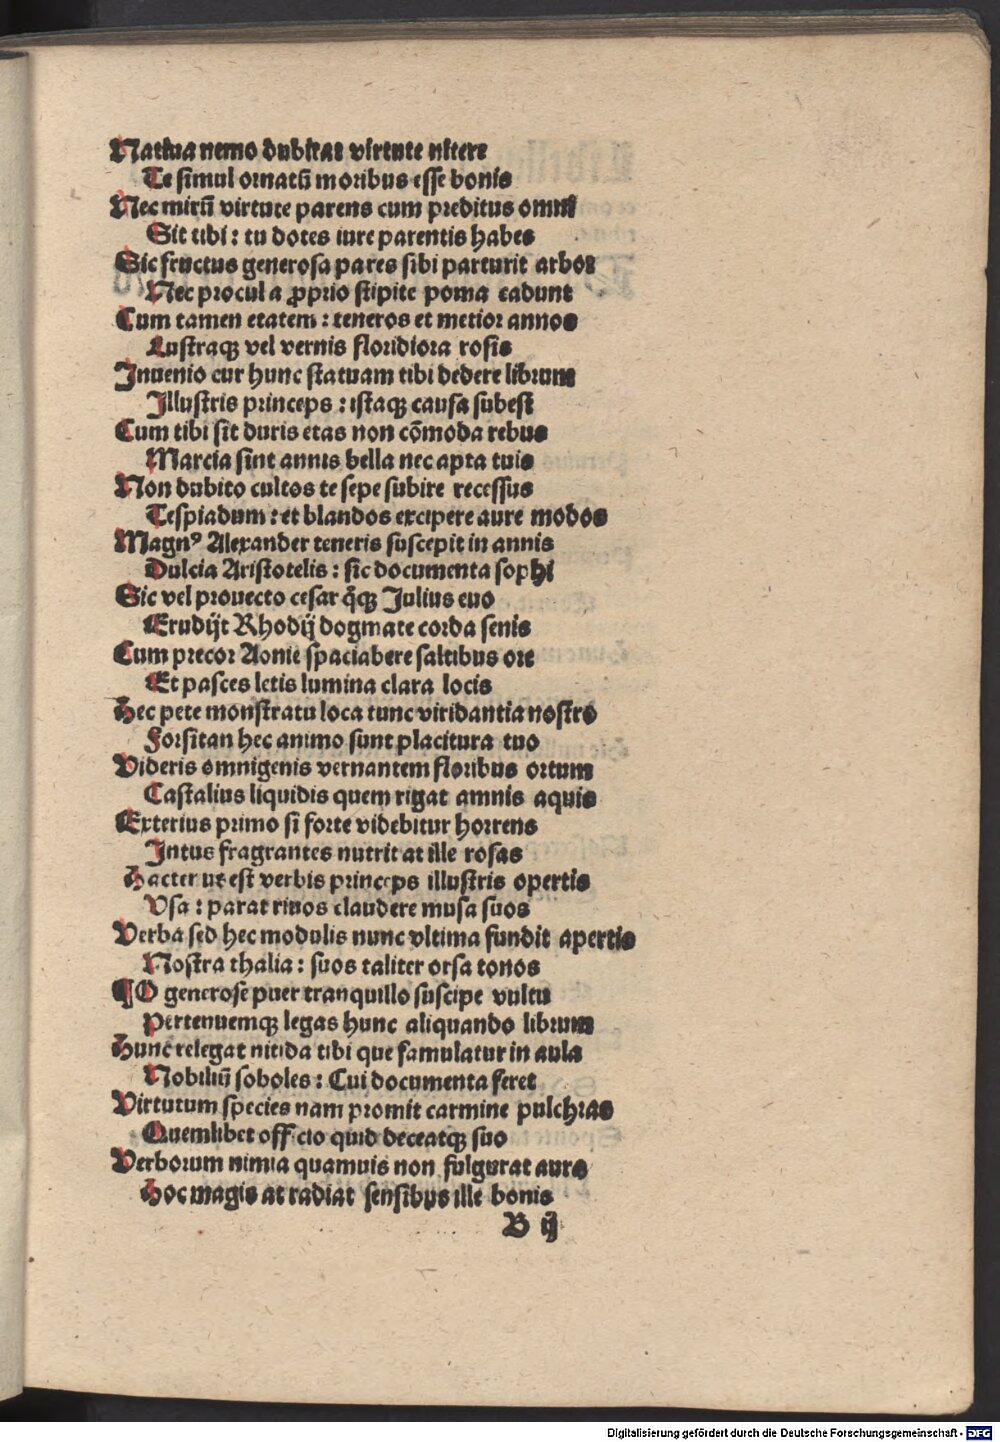 Natiua nemo dubitat virtute nitere
Te simul ornatū moribus esse bonis
Nec mirū virtute parens cum preditus omni
Sit tibi : tu dotes iure parentis habes
Sic fructus generosa pares sibi parturit arbor
Nec procul a ꝓprio stipite poma cadunt
Cum tamen etatem : teneros et metior annos
Lustraqꝫ vel vernis floridiora rosis
Inuenio cur hunc statuam tibi dedere librum
Illustris princeps : istaqꝫ causa subest
Cum tibi sit duris etas non cōmoda rebus
Marcia sint annis bella nec apta tuis
Non dubito cultos te sepe subire recessus
Tespiadum : et blandos excipere aure modos
Magnꝰ Alexander teneris suscepit in annis
Dulcia Aristotelis : sic documenta sophi
Sic vel prouecto cesar q̄qꝫ Julius euo
Erudijt Rhodij dogmate corda senis
Cum precor Aonie spaciabere saltibus ore
Et pasces letis lumina clara locis
Hec pete monstratu loca tunc viridantia nostro
Forsitan hec animo sunt placitura tuo
Videris omnigenis vernantem floribus ortum
Castalius liquidis quem rigat amnis aquis
Exterius primo si forte videbitur horrens
Intus fragrantes nutrit at ille rosas
Hactenus est verbis princeps illustris opertis
Vsa : parat riuos claudere musa suos
Verba sed hec modulis nunc vltima fundit apertis
Nostra thalia : suos taliter orsa tonos
¶O generose puer tranquillo suscipe vultu
Pertenuemqꝫ legas hunc aliquando librum
Hunc relegat nitida tibi que famulatur in aula
Nobiliū soboles : Cui documenta feret
Virtutum species nam promit carmine pulchras
Quemlibet officio quid deceatqꝫ suo
Verborum nimia quamuis non fulgurat aura
Hoc magis at radiat sensibus ille bonis
B ij
Digitalisierung gefördert durch die Deutsche Forschungsgemeinschaft - DFG